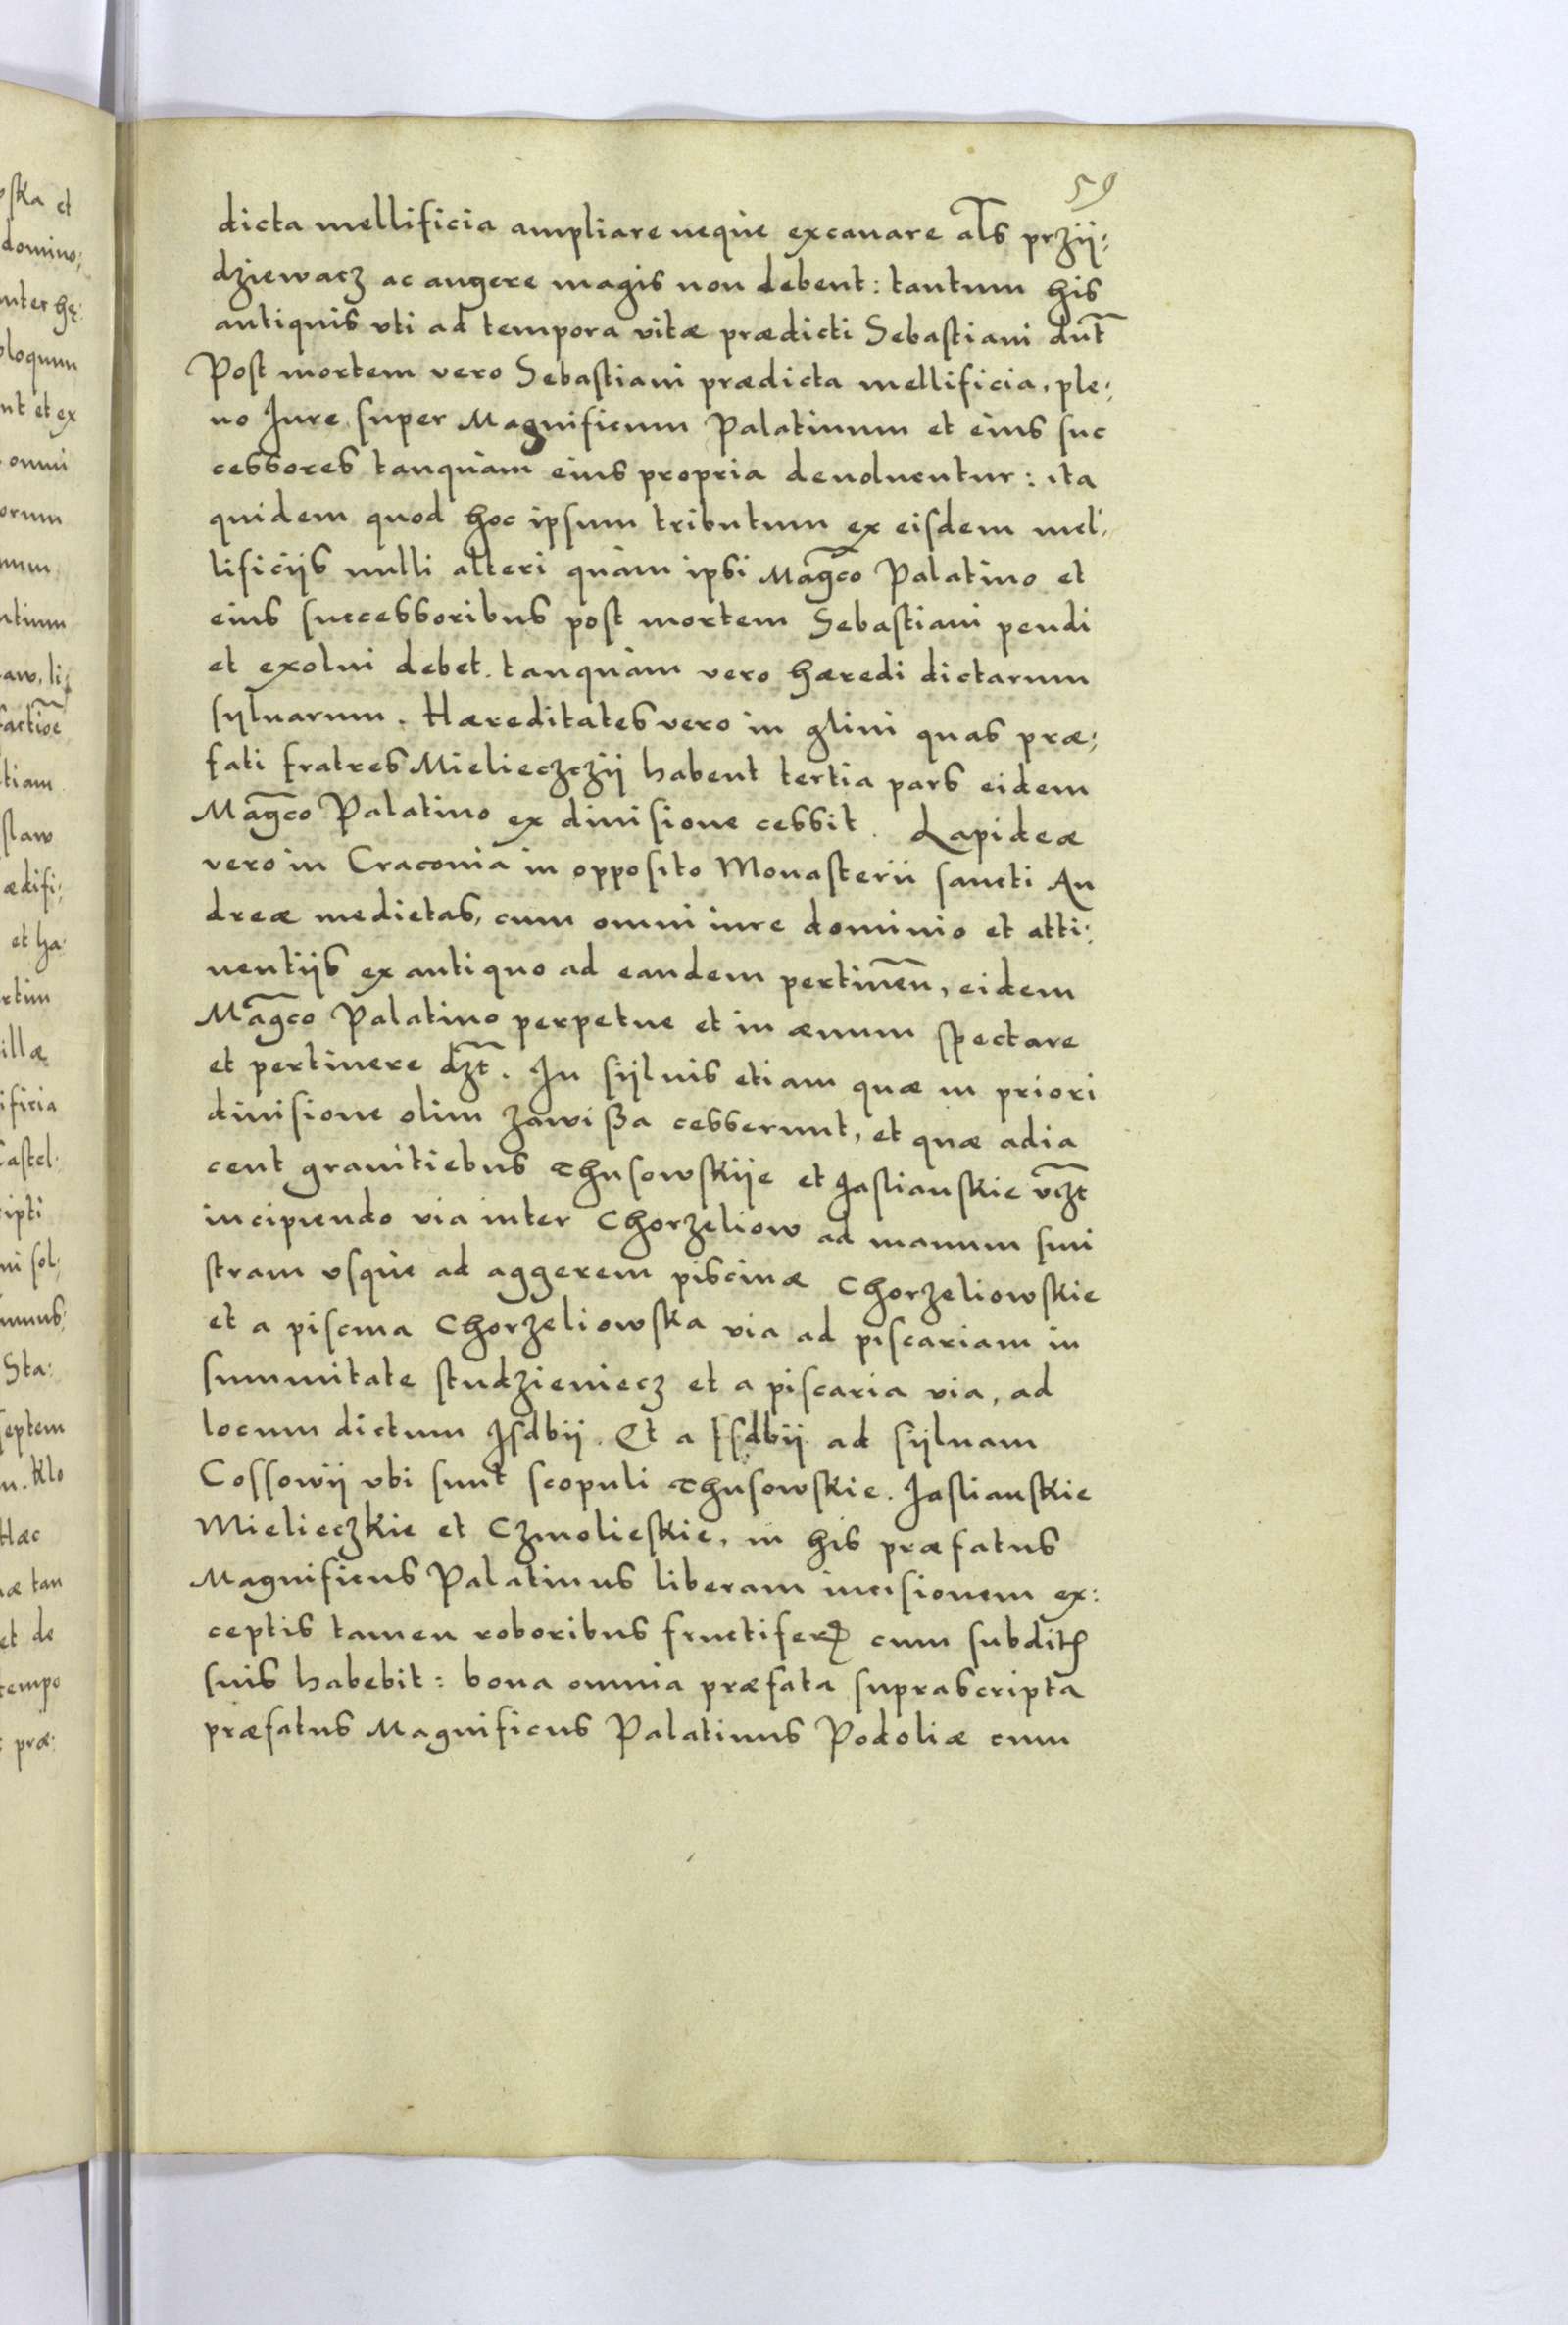 59
dicta mellificia ampliare neque excauare al̃s przij:
dziewacz ac augere magis non debent: tantum his
antiquis vti ad tempora vitæ prædicti Sebastiani dñt
Post mortem vero Sebastiani prædicta mellificia, ple:
no Jure super Magnificum Palatinum et eius suc
cessores tanquam eius propria deuoluentur: ita
quidem quod hoc ipsum tributum ex eisdem mel:
lificijs nulli alteri quam ipsi Mag̃co Palatino et
eius successoribus post mortem Sebastiani pendi
et exolui debet. tanquam vero hæredi dictarum
syluarum. Hæreditates vero in glini quas præ:
fati fratres Mielieczczij habent tertia pars eidem
Mag̃co Palatino ex diuisione cessit. Lapideæ
vero in Craconia in opposito Monasterii sancti An
dreæ medietas, cum omni iure dominio et atti:
nentijs ex antiquo ad eandem pertineñ, eidem
Mag̃co Palatino perpetue et in æuum spectare
et pertinere dz̃t. In sijluis etiam quæ in priori
diuisione olim zawißa cesserunt, et quæ adia
cent granitiebus Thusowskije et Jaslianskie vz̃t
incipiendo via inter Chorzeliow ad manum sini
stram vsque ad aggerem piscinæ Chorzeliowskie
et a piscina Chorzeliowska via ad piscariam in
summitate studzieniecz et a piscaria via, ad
locum dictum Jsdbij. Et a Jsdbij ad sijluam
Cossowij vbi sunt scopuli Thusowskie. Jaslianskie
Mielieczkie et Czmolieskie, in his præfatus
Magnificus Palatinus liberam incisionem ex:
ceptis tamen roboribus fructiferꝭ cum subditꝭ
suis habebit: bona omnia præfata suprascripta
præfatus Magnificus Palatinus Podoliæ cum